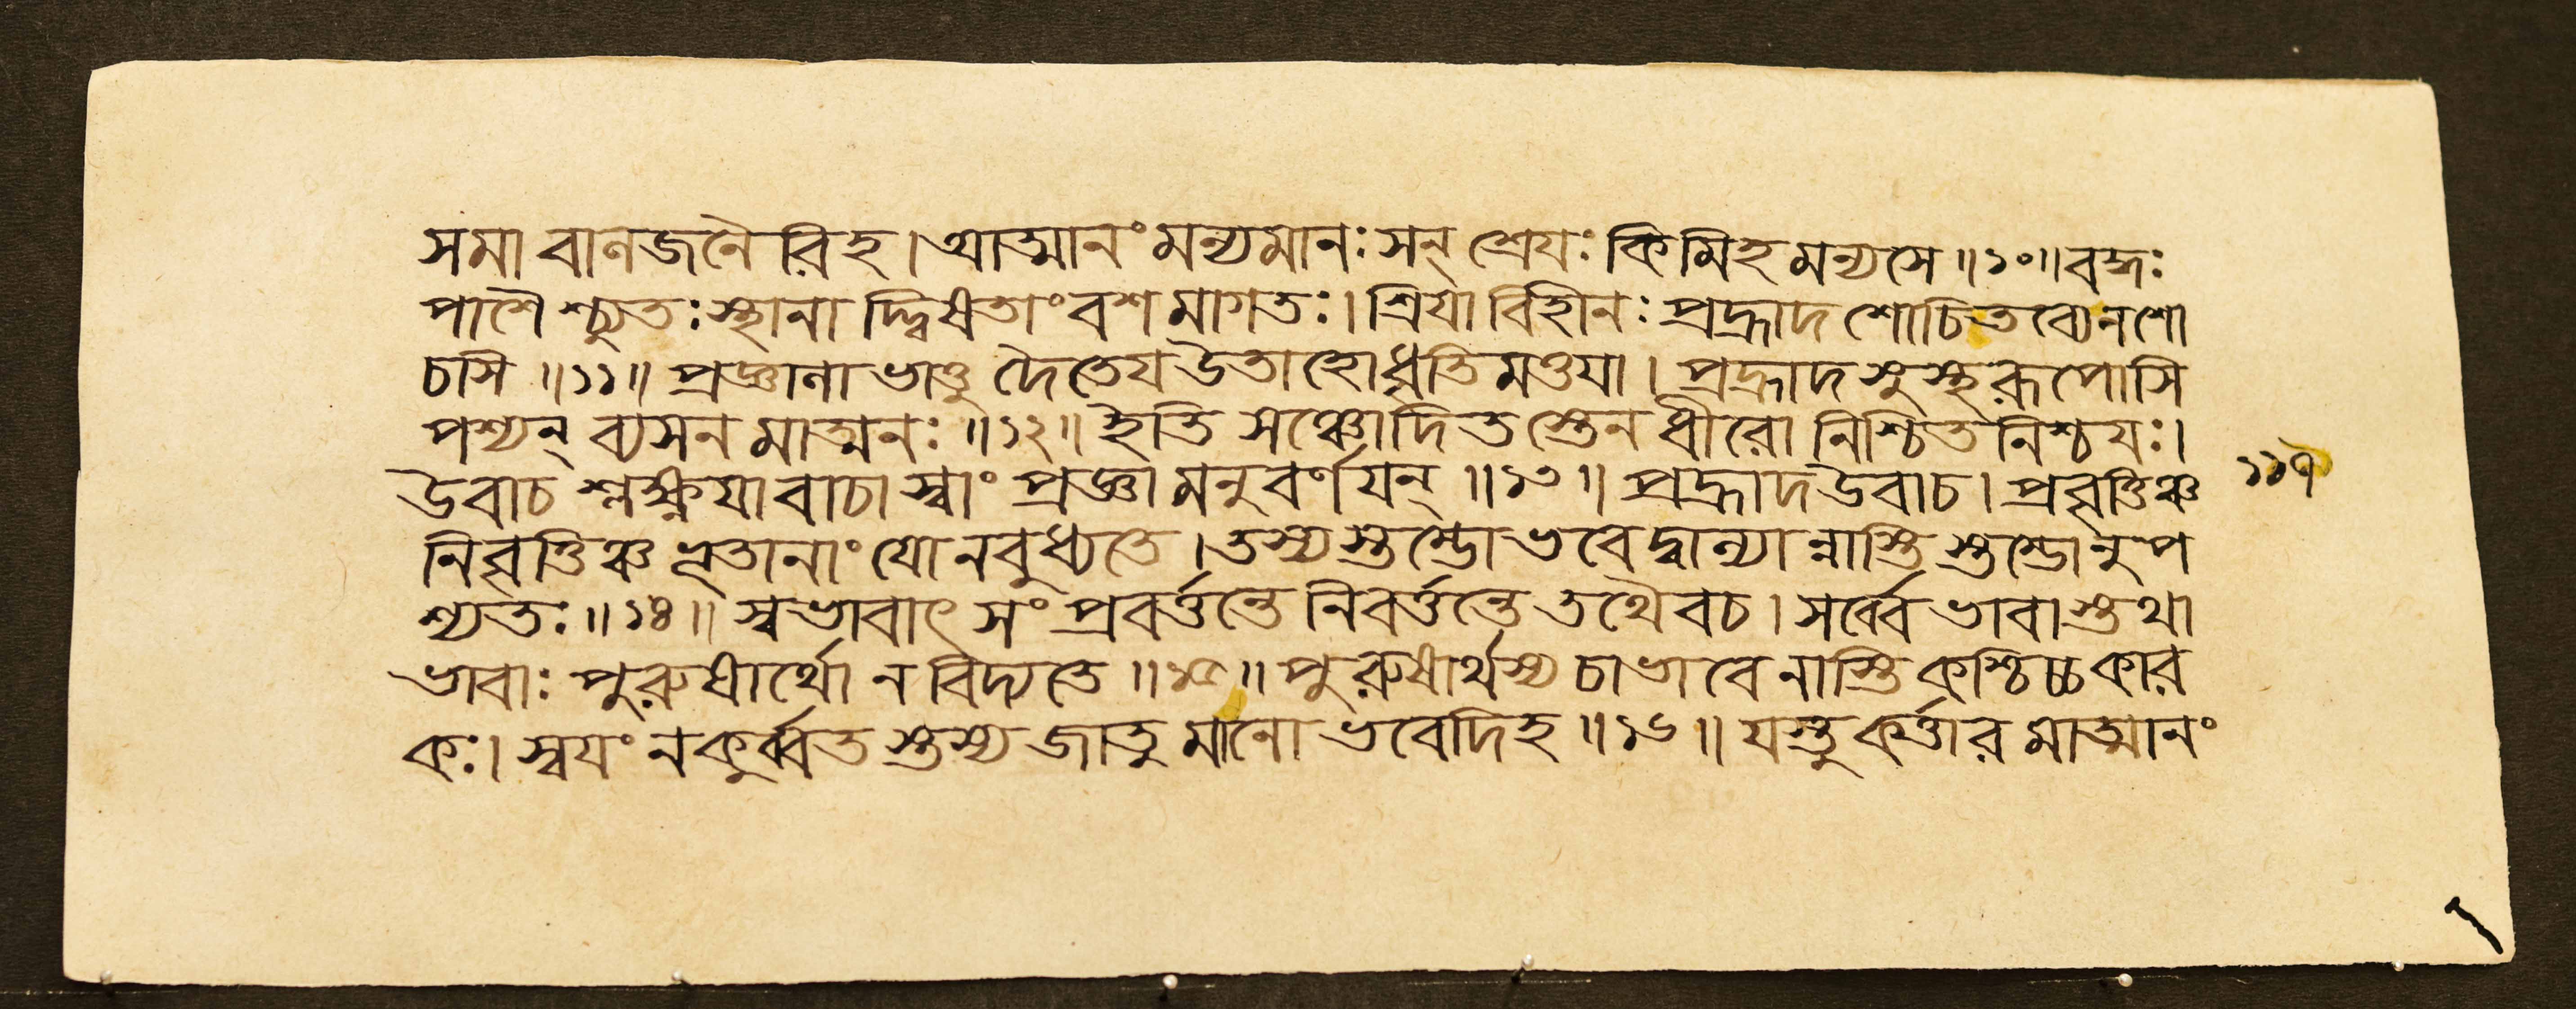 সমা বাণজনৈ রিহ। আত্মানং মন্যমানঃ সন্ শ্রেয়ঃ কিমিহ মন্যসে॥১০॥বদ্ধঃ
পাশৈ শ্চ্যুতঃ স্থানা দ্দ্বিষতাং বশ মাগতঃ। শ্রিয়া বিহীনঃ প্রহ্রাদ শোচিতব্যেনশো
চসি॥১১॥ প্রজ্ঞানা ভাত্তু দৈতেয উতাহো ধৃতিমত্তযা। প্রহ্রাদ সুস্থরূপোসি
পশ্যন্ ব্যসন মাত্মনঃ॥১২॥ ইতি সঞ্চোদিত স্তেন ধীরো নিশ্চিত নিশ্চযঃ।
উবাচ শ্লক্ষ্ণযা বাচা স্বাং প্রজ্ঞা মনুবর্ণযন্॥১৩॥ প্রহ্রাদ উবাচ। প্রবৃত্তিঞ্চ
নিবৃত্তিঞ্চ ভূতানাং যো নবুধ্যতে। তস্য স্তম্ভো ভবেদ্বাল্যা ন্নাস্তি স্তম্ভোনুপ
শ্যতঃ॥১৪॥ স্বভাবাৎ সং প্রবর্ত্তন্তে নিবর্ত্তন্তে তথৈবচ। সর্ব্বে ভাবা স্তথা
ভাবাঃ পুরুষার্থো ন বিদ্যতে॥১৫॥ পুরুষার্থস্য চাভাবে নাস্তি কশ্চিচ্চকার
কঃ। স্বযং নকুর্ব্বত স্তস্য জাতু মানো ভবেদিহ॥১৬॥ যস্তু কর্ত্তার মাত্মানং
১১৭